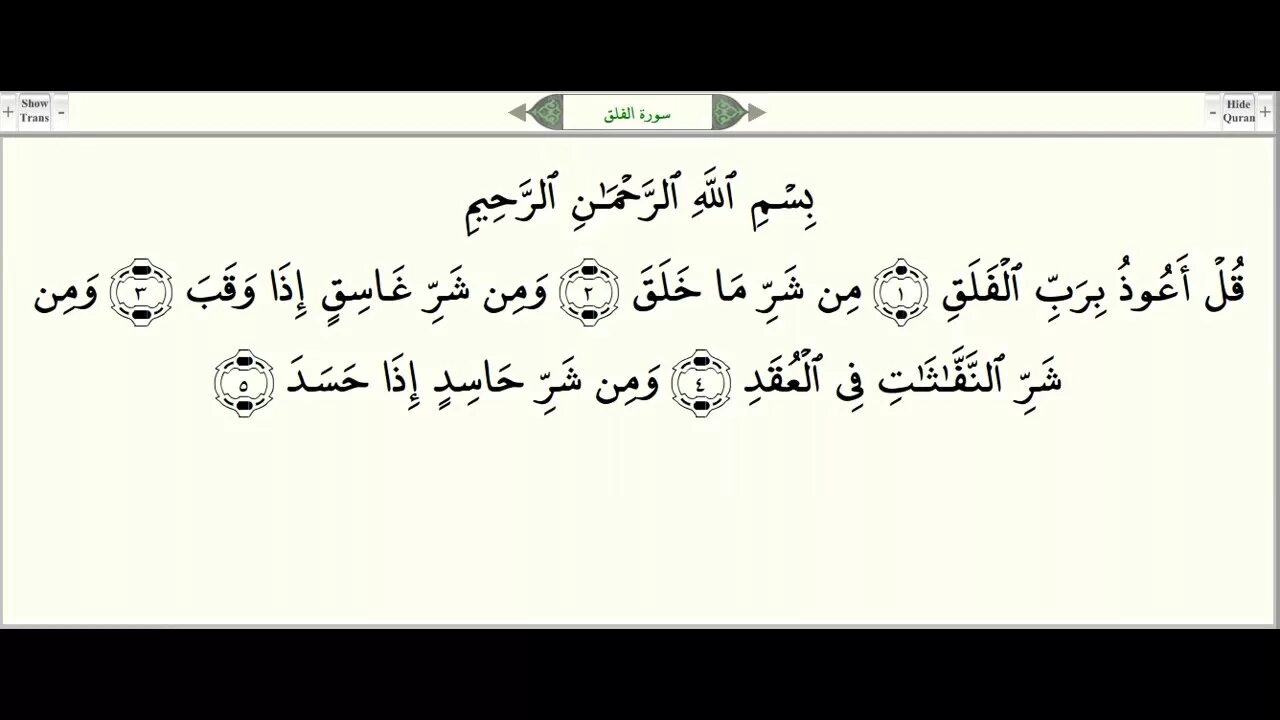 + Show Trans - سورة الفلق - Hide Quran +
بِسْمِ ٱللَّهِ ٱلرَّحْمَـٰنِ ٱلرَّحِيمِ
قُلْ أَعُوذُ بِرَبِّ ٱلْفَلَقِ ١ مِن شَرِّ مَا خَلَقَ ٢ وَمِن شَرِّ غَاسِقٍ إِذَا وَقَبَ ٣ وَمِن
شَرِّ ٱلنَّفَّـٰثَـٰتِ فِى ٱلْعُقَدِ ٤ وَمِن شَرِّ حَاسِدٍ إِذَا حَسَدَ ٥